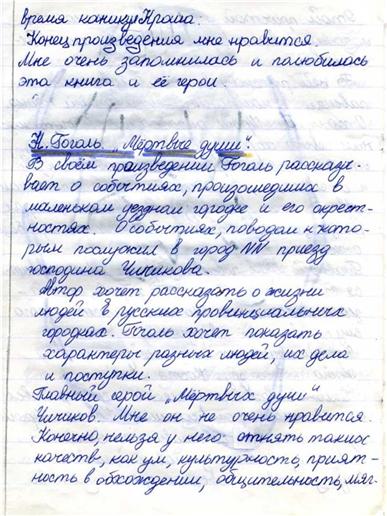 время каникул Кроша.
Конец произведения мне нравится.
Мне очень запомнилась и полюбилась
эта книга и её герои.
Н. Гоголь „Мёртвые души".
В своём произведении Гоголь рассказы-
вает о событиях, произошедших в
маленьком уездном городке и его окрест-
ностях. О событиях, поводам к кото-
рым послужил в город NN приезд
господина Чичикова.
Автор хочет рассказать о жизни
людей в русских провинциальных
городках. Гоголь хочет показать
характеры разных людей, их дела
и поступки.
Главный герой „Мёртвых души"
Чичиков. Мне он не очень нравится.
Конечно, нельзя у него отнять таких
качеств, как ум, культурность, прият-
ность в обхождении, общительность, мяг-